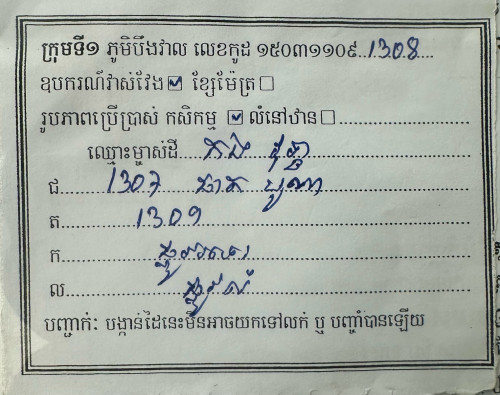 ក្រុមទី១ ភូមិបឹងវាល លេខកូដ ១៥០៣១១០៩ 1308
ឧបករណ៍វាស់វែង ☑ ខ្សែម៉ែត្រ ☐
រូបភាពប្រើប្រាស់ កសិកម្ម ☑ លំនៅឋាន ☐
ឈ្មោះម្ចាស់ដី កង វុទ្ធា
ជ 1307 ផាត បូណា
ត 1309
ក ផ្លូវ
ល ផ្លូវលំ
បញ្ជាក់ៈ បង្កាន់ដៃនេះមិនអាចយកទៅលក់ ឬ បញ្ចាំបានឡើយ